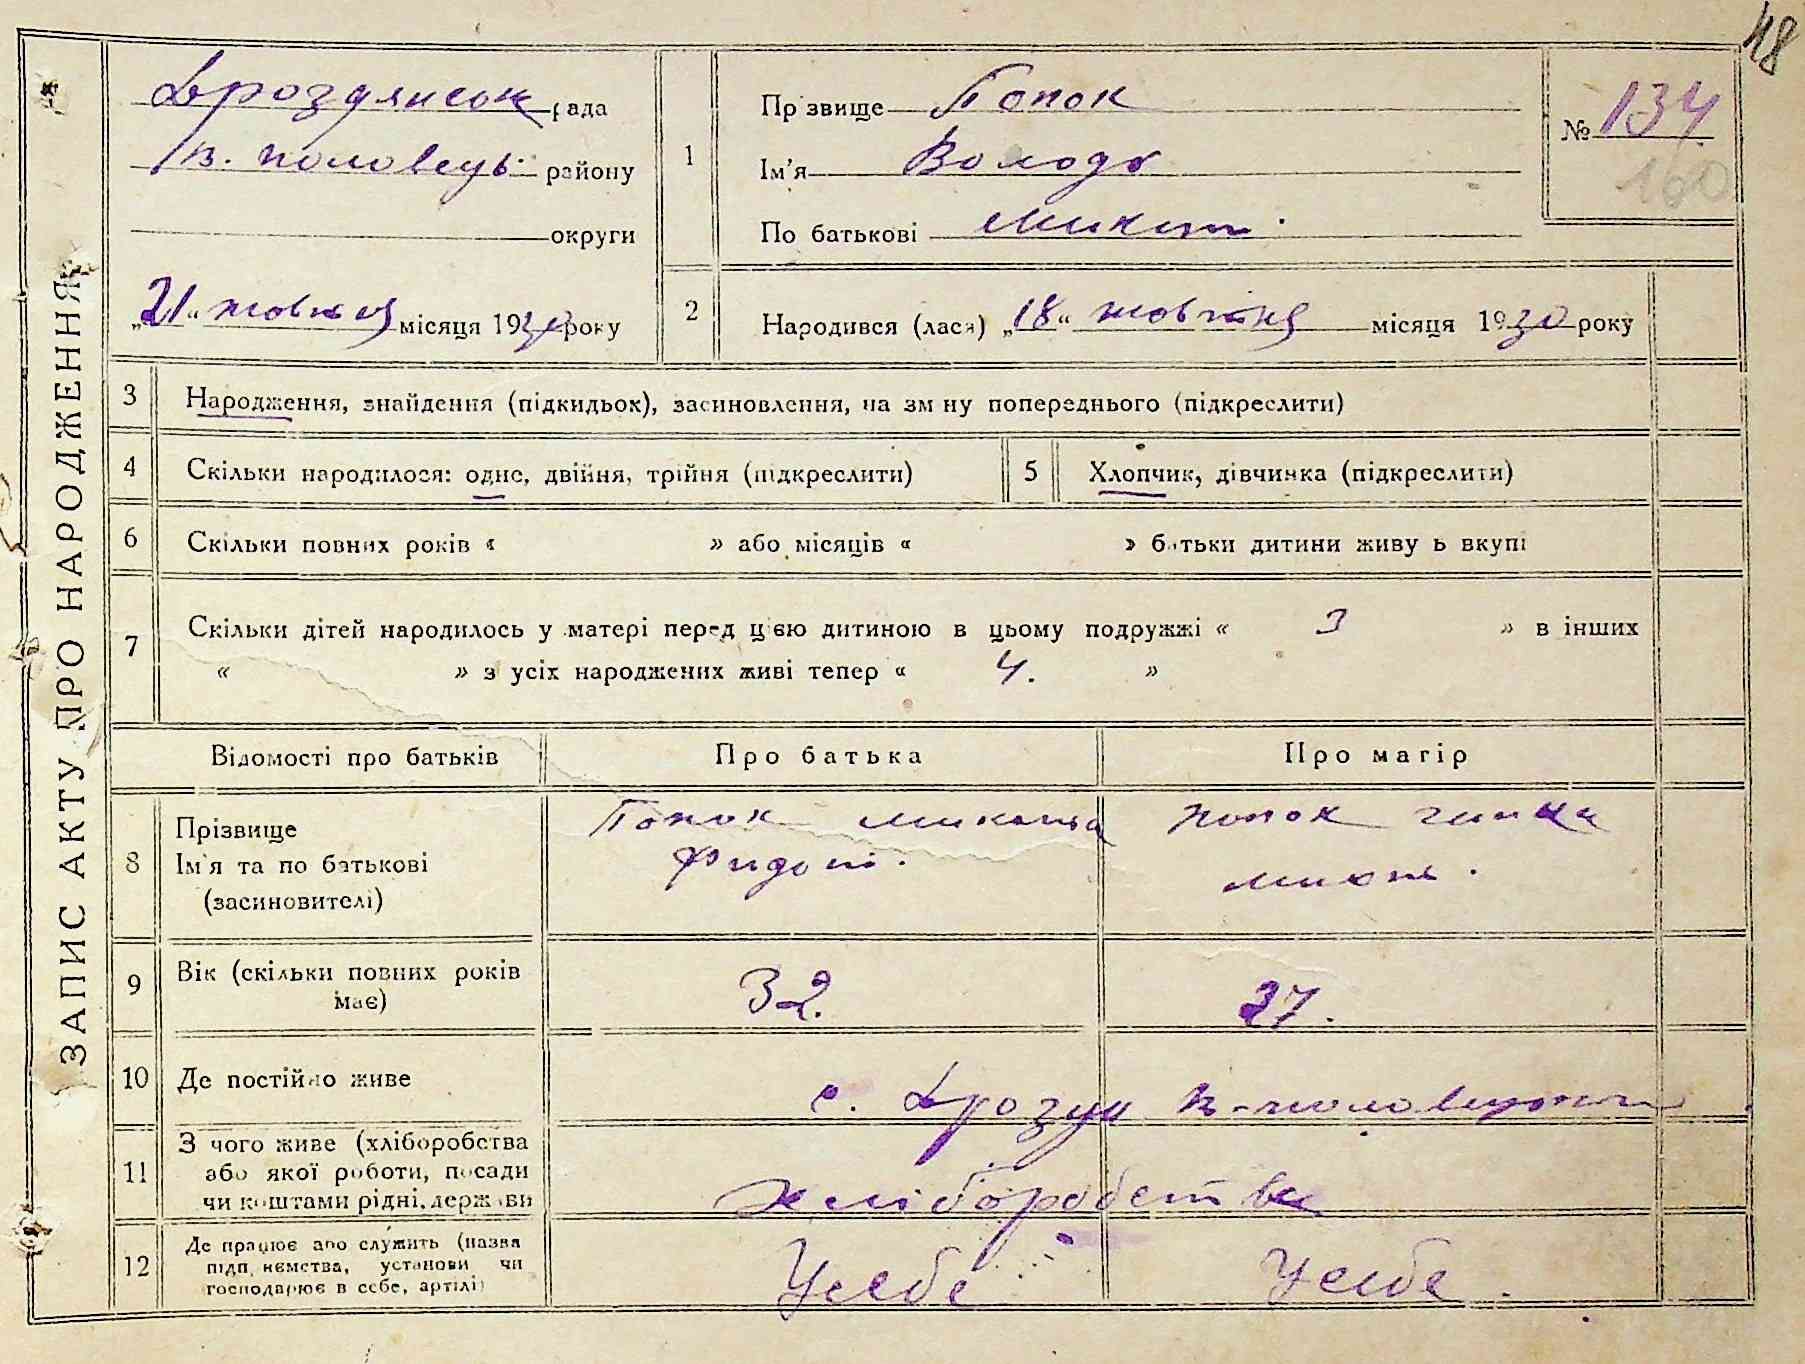 48
ЗАПИС АКТУ ПРО НАРОДЖЕННЯ
Дроздянськ рада
В. Половець району
округи
„21“ жовтня місяця 1930 року
1
Прізвище Попок
Ім'я Володь
По батькові Микит.
№ 134
160
2
Народився (лася) „18“ жовтня місяця 1930 року
3
Народження, знайдення (підкидьок), засиновлення, на зміну попереднього (підкреслити)
4
Скільки народилося: одне, двійня, трійня (підкреслити)
5
Хлопчик, дівчинка (підкреслити)
6
Скільки повних років « » або місяців « » батьки дитини живуть вкупі
7
Скільки дітей народилось у матері перед цією дитиною в цьому подружжі « 3 » в інших
« » з усіх народжених живі тепер « 4. »
Відомості про батьків Про батька Про матір
8
Прізвище
Ім'я та по батькові
(засиновителі)
Попок Микита
Попок
9
Вік (скільки повних років
має)
32.
27.
10
Де постійно живе
с. Дрозди В-Половецьк
11
З чого живе (хліборобства
або якої роботи, посади
чи коштами рідні, держави
хліборобства
12
Де працює або служить (назва
підприємства, установи чи
господарює в себе, артілі)
У себе
У себе.